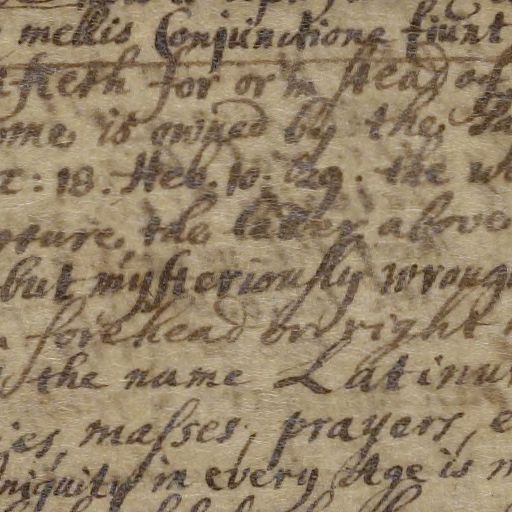 mellis Conjunctione fiunt
for or in stead of
ome is owned by the
: 18. Heb. 10. 29. the
pture, the latter above
but mysteriously wroug
forehead or right
the name Latinu
ies, masses, prayers, e
niquity in every Age is